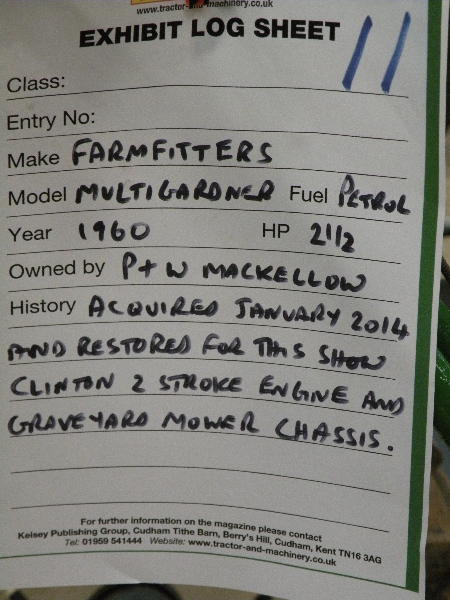 www.tractor-and-machinery.co.uk
EXHIBIT LOG SHEET 11
Class:
Entry No:
Make FARMFITTERS
Model MULTIGARDNER Fuel PETROL
Year 1960 HP 2 1/2
Owned by P + W MACKELLOW
History ACQUIRED JANUARY 2014
AND RESTORED FOR THIS SHOW
CLINTON 2 STROKE ENGINE AND
GRAVEYARD MOWER CHASSIS.
For further information on the magazine please contact
Kelsey Publishing Group, Cudham Tithe Barn, Berry's Hill, Cudham, Kent TN16 3AG
Tel: 01959 541444 Website: www.tractor-and-machinery.co.uk